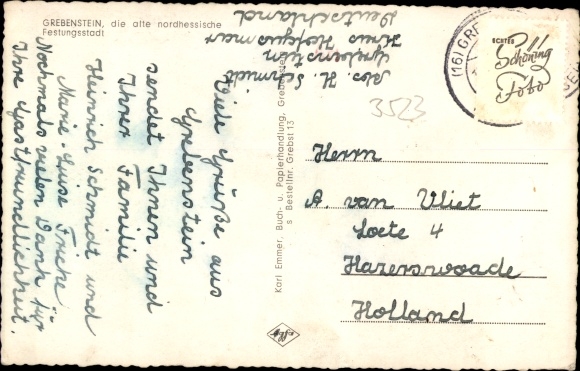 GREBENSTEIN, die alte nordhessische
Festungsstadt
Abs. H. Schmidt
Grebenstein
Kreis Hofgeismar
Deutschland
Viele Grüße aus
Grebenstein
sendet Ihnen und
Ihrer Familie
Heinrich Schmidt und
Marie-Luise Friche
Nochmals vielen Dank für
Ihre Gastfreundlichkeit.
Karl Emmer, Buch- u. Papierhandlung, Grebenstein
s Bestellnr. Grebst 13
(16) GRE
ECHTES
Schöning
Foto
3523
Herrn
A. van Vliet
Loete 4
Hazerswoade
Holland
Agfa